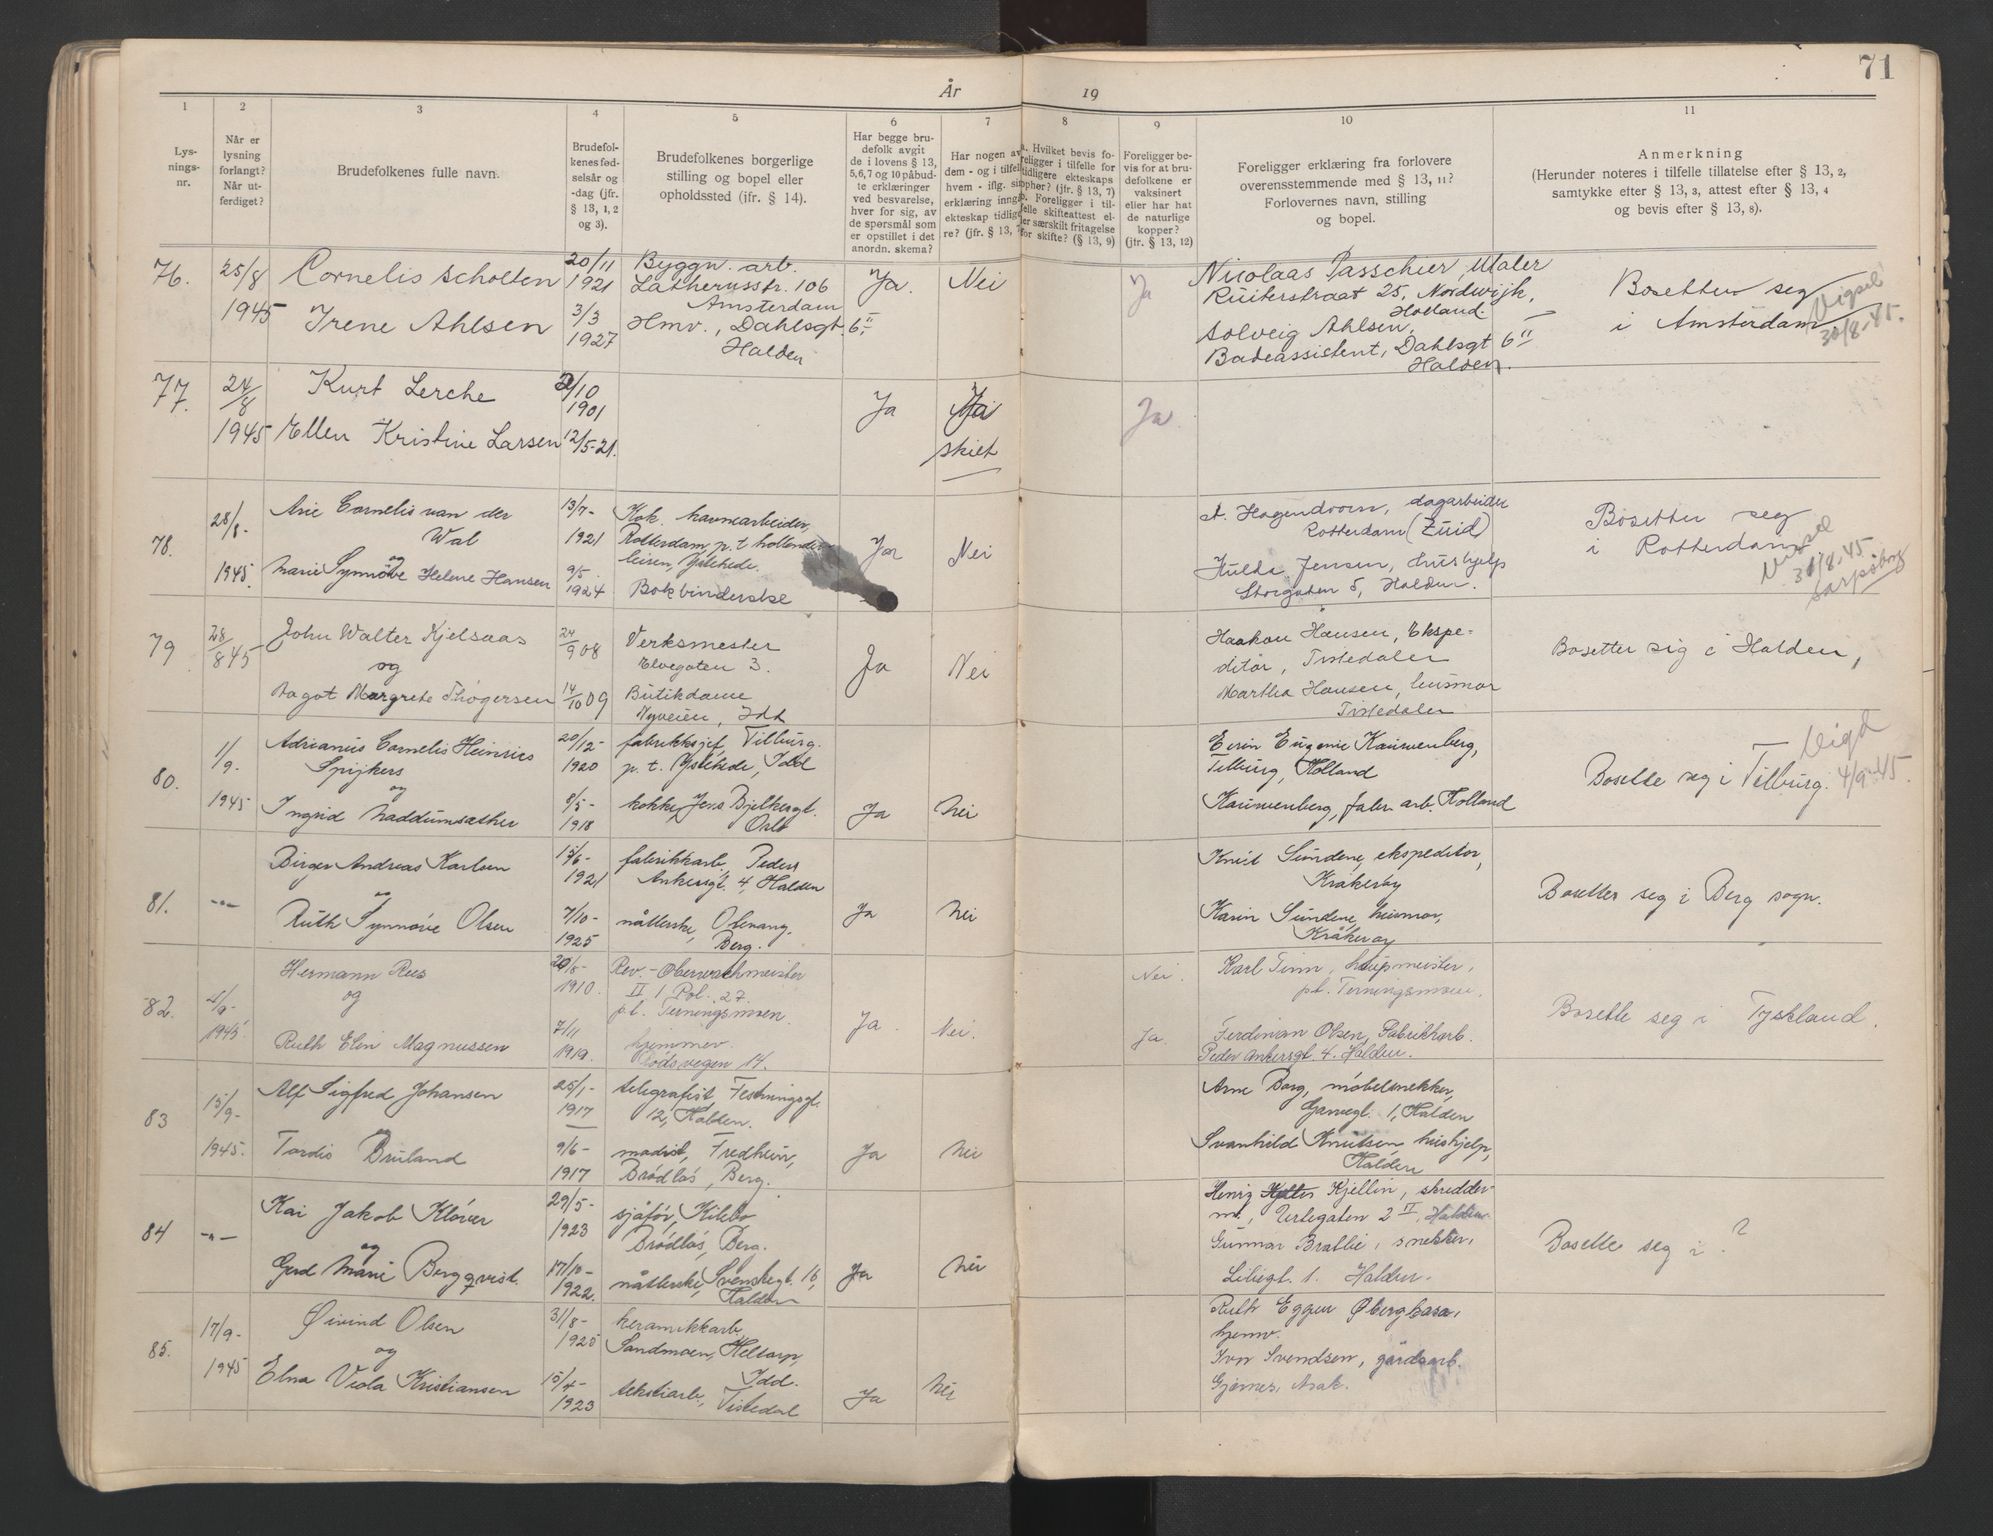 71
År 19
1 2 3 4 5 6 7 8 9 10 11
Lys-
nings-
nr.
Når er
lysning
forlangt?
Når ut-
ferdiget?
Brudefolkenes fulle navn.
Brudefol-
kenes fød-
selsår og
-dag (jfr.
§ 13, 1, 2
og 3).
Brudefolkenes borgerlige
stilling og bopel eller
opholdssted (jfr. § 14).
Har begge bru-
defolk avgit
de i lovens § 13,
5,6,7 og 10 påbud-
te erklæringer
ved besvarelse,
hver for sig, av
de spørsmål som
er opstillet i det
anordn. skema?
Har nogen av
dem - og i tilfel
hvem - iflg. si
erklæring inng
ekteskap tidlig
re? (jfr. § 13,
a. Hvilket bevis fo-
religger i tilfelle for
tidligere ekteskaps
opher? (jfr. § 13, 7)
b. Foreligger i til-
felle skifteattest el-
ler særskilt fritagelse
for skifte? (§ 13, 9)
Foreligger be-
vis for at bru-
defolkene er
vaksinert
eller har hat
de naturlige
kopper?
(jtr. § 13, 12)
Foreligger erklæring fra forlovere
overensstemmende med § 13, 11?
Forlovernes navn, stilling
og bopel.
Anmerkning
(Herunder noteres i tilfelle tillatelse efter § 13, 2,
samtykke efter § 13, 3, attest efter § 13, 4
og bevis efter § 13, 8).
76. 25/8 1945
Cornelis Scholten
Irene Ahlsen
20/11 1921
3/3 1927
Byggn. arb.
Latherusstr. 106
Amsterdam
Hmv., Dahlsgt. 6 II
Halden
Ja. Nei Ja
Nicolaas Passchier, Maler
Ruiterstraat 25, Nordwijk,
Holland.
Solveig Ahlsen,
Badeassistent, Dahlsgt 6 II
Halden.
Bosetter seg
i Amsterdam
Vigsel
30/8-45.
77. 24/8 1945
Kurt Lerche
Ellen Kristine Larsen
2/10 1901
12/5-21.
Ja Ja
skilt
Ja.
78. 28/8- 1945.
Arie Cornelis van der
Wal
og
Marie Synnöve Helene Hansen
13/7- 1921
9/5. 1924
Kok. havnearbeider,
Rotterdam, p. t. hollender-
leiren, Ystehede.
Bokbinderske
Ja Nei
A. Hogendoorn, dagarbeider
Rotterdam (Zuid)
Hulda Jensen, Hushjelp
Storgaten 5, Halden.
Bosetter seg
i Rotterdam
Vigsel
31/8.45
Sarpsborg
79 28/8 45
John Walter Kjelsaas
og
Dagot Margrete Thøgersen
24/9 08
14/10 09
Verksmester
Elvegaten 3.
Butikdame
Nyveien, Idd
Ja Nei
Haakon Hansen, Ekspe-
ditør, Tistedalen
Martha Hansen, husmor
Tistedalen
Bosetter sig i Halden,
80. 1/9. 1945
Adrianus Cornelis Heinries
Spijkers
og
Ingrid Naddumsæther
20/12- 1920
8/5- 1918
fabrikksjef, Tilburg.
p. t. Ystehede, Idd
kokke, Jens Bjelkesgt.
Oslo
Ja Nei
Eugenie Kauwenberg,
Tilburg, Holland
Kauwenberg, fabr. arb. Holland
Bosette seg i Tilburg.
Vigd
4/9-45.
81. -"-
Birger Andreas Karlsen
og
Ruth Synnöve Olsen
15/6- 1921
7/10- 1925
fabrikkarb. Peder
Ankersgt. 4, Halden
nåtlerske,
Berg.
Ja Nei
Knut Sundene, ekspeditør,
Kråkerøy
Karin Sundene, husmor,
Kråkerøy
Bosetter seg i Berg sogn.
82. 4/9- 1945
Hermann Rees
og
Ruth Elin Magnussen
20/8- 1910.
7/11 1919.
Rev.-Oberwachmeister
II / Pol. 27.
p.t. Terningsmoen.
hjemmev.
Rödsvegen 14.
Ja Nei. Nei. Ja.
Karl Timm, haupmeister,
p.t. Terningsmoen.
Ferdinan Olsen, Fabrikkarb.
Peder Ankersgt. 4. Halden.
Bosette seg i Tyskland.
83 15/9- 1945.
Alf Sigfred Johansen
Tordis Bruland
25/1- 1917
9/6- 1917
telegrafist, Festningsgt.
12, Halden.
modist, Fredheim,
Brödløs, Berg.
Ja Nei
Arne Borg, möbelsnekker,
Garvegt. 1, Halden
Svanhild Knutsen hushjelp,
Halden
84 -"-
Kai Jakob Klöver
og
Gerd Marie Bergqvist.
29/5- 1923
17/10- 1922.
sjåfør, Kilebo
Brödløs, Berg.
nåtlerske, Svenskegt. 16,
Halden
Ja Nei
Henry Kjellin, skredder-
m., Urtegaten 2 IV, Halden.
Gunnar Brattlie, snekker,
Liliegt. 1. Halden.
Bosette seg i ?
85. 17/9- 1945
Øivind Olsen
og
Elna Viola Kristiansen
31/8- 1925
15/4- 1923
keramikkarb.
Sandmoen, Heltorp,
Idd.
tekstilarb.,
Tistedal
Ja Nei
Ruth Eggen Øbergkasa,
hjemv.
Ivar Svendsen, gårdsarb.
Gjørnes, Asak.